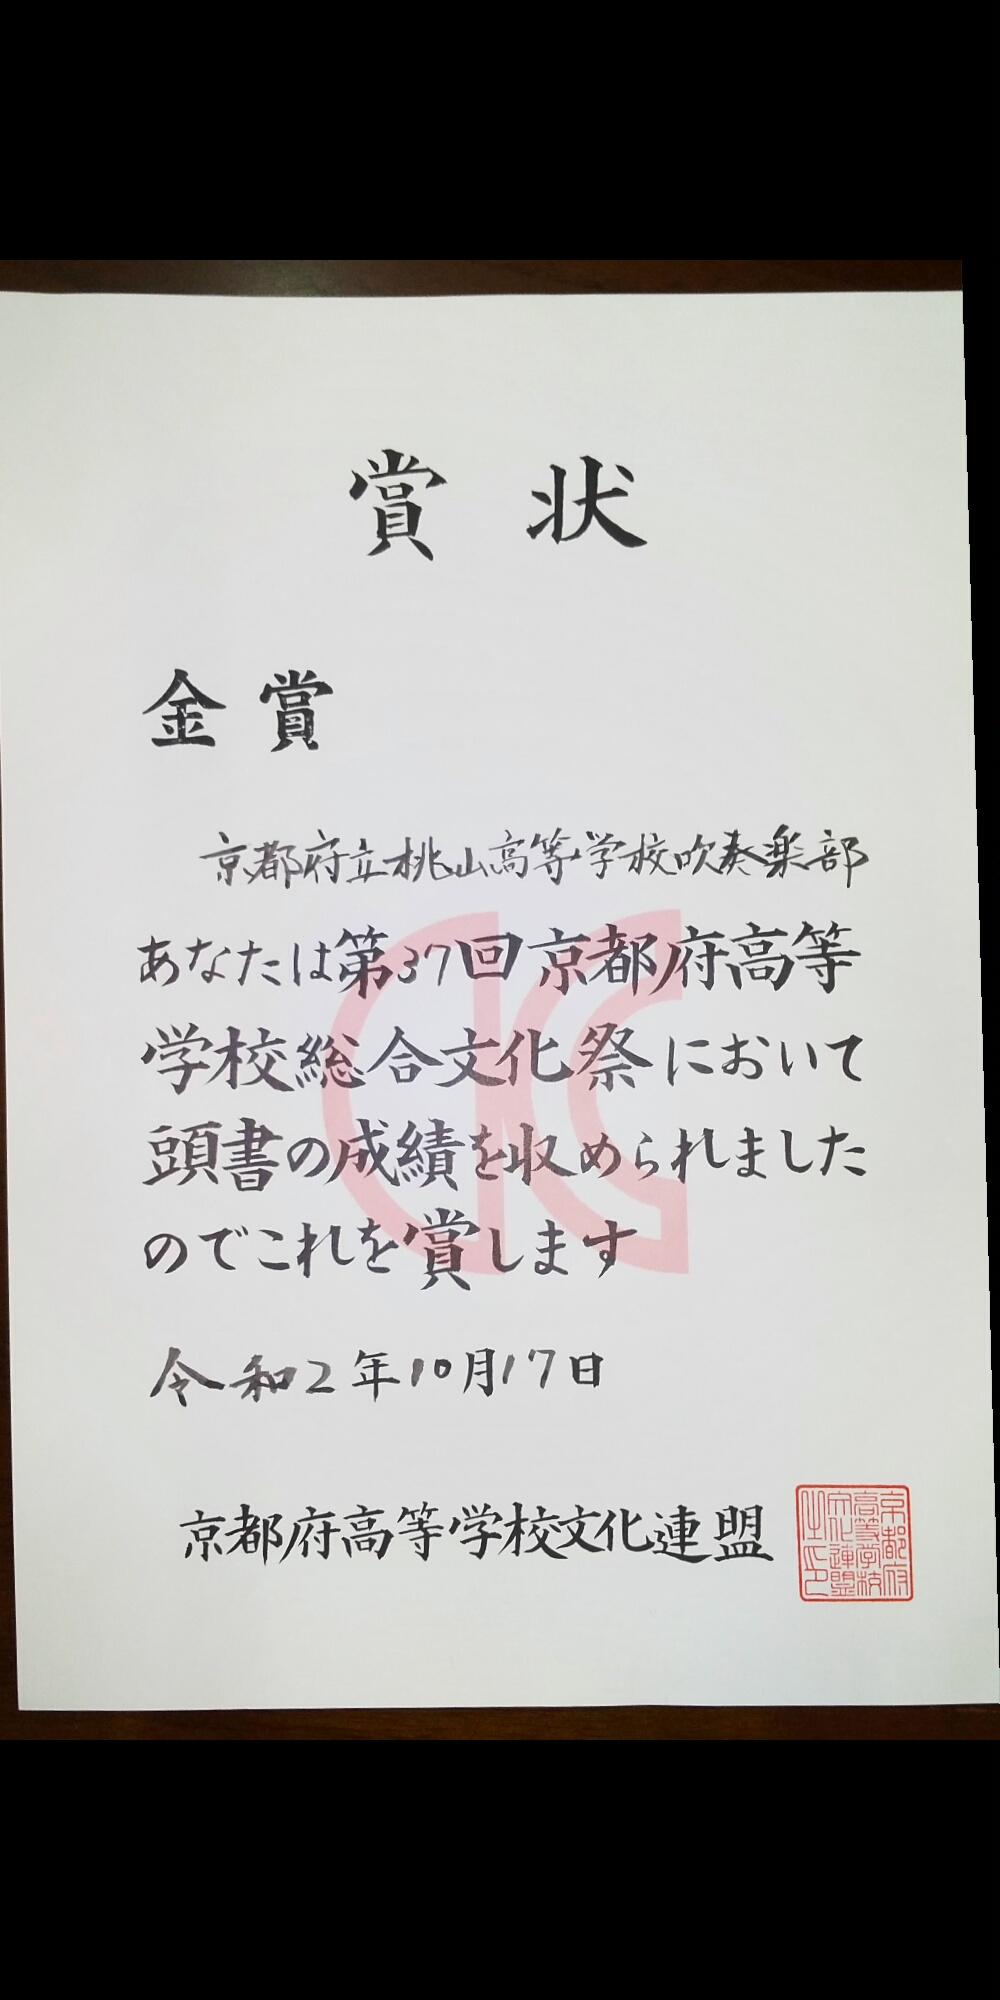 賞状
金賞
京都府立桃山高等学校吹奏楽部
あなたは第37回京都府高等
学校総合文化祭において
頭書の成績を収められました
のでこれを賞します
令和2年10月17日
京都府高等学校文化連盟
京都府
高等学校
文化連盟
之印